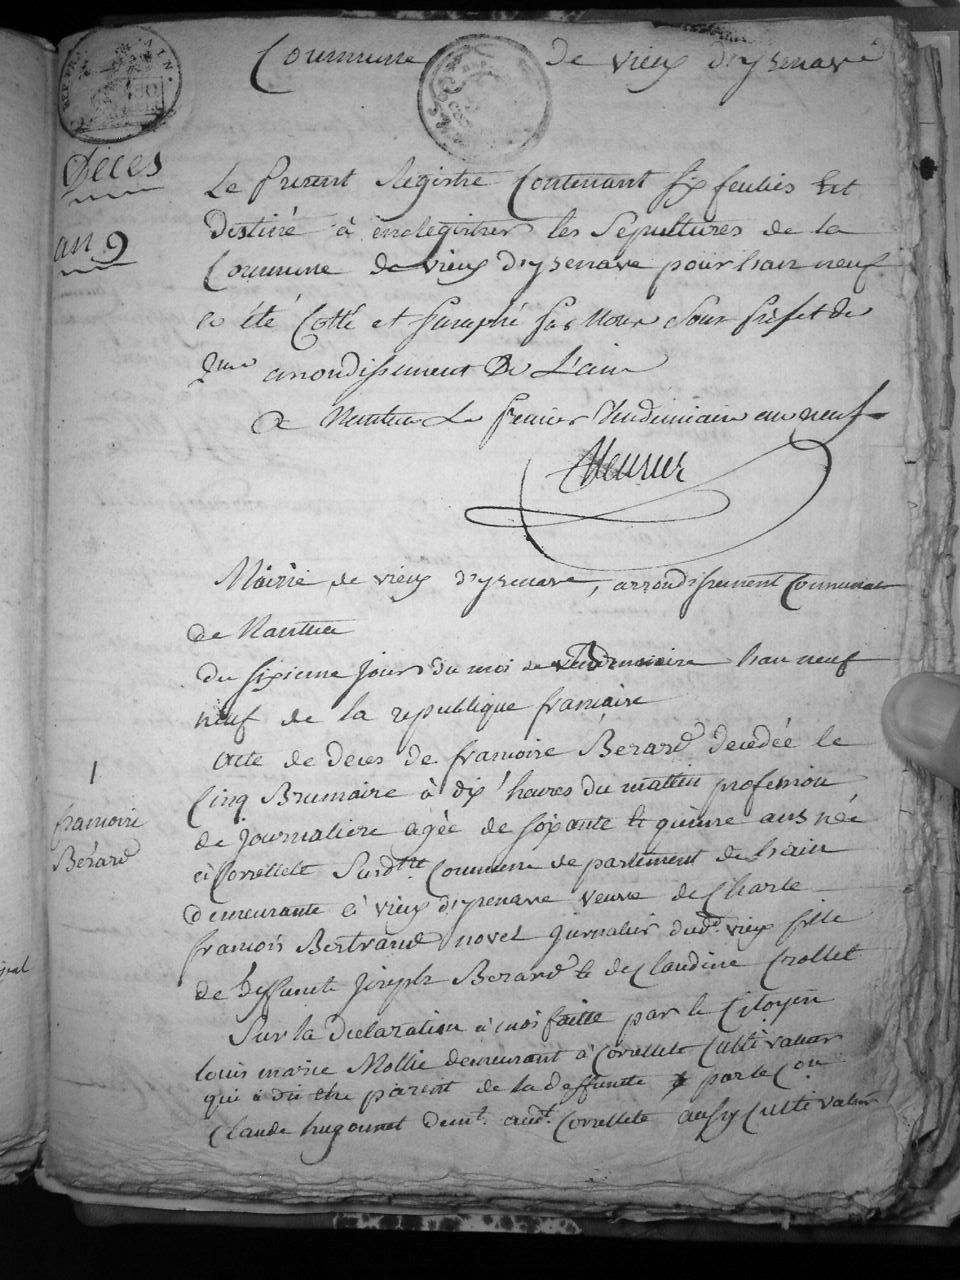 Commune de vieux d'ysenave
Déces
an 9
Le Present Registre Contenant six feulies Est
Destiné à enregistrer les Sépultures de la
Commune de vieux d'ysenave pour l'an neuf
a été Cotté et paraphé par Nous Sous préfet du
arrondissement De L'ain
A Nantua Le premier Vendemiaire an neuf
Mairie de vieux d'ysenave, arrondissement Communal
de Nantua
du sixieme jour du moi de Brumaire l'an neuf
neuf de la republique francaise
acte de deces de francoise Bérard decedée le
Cinq Brumaire à dix heures du mattin profession
de journaliere agée de soixante et quinze ans née
à Corellete Surdtte Commune departement de L'ain
demeurante à vieux d'ysenave veuve de Charle
francois Bertrand novel jurnalier dudt vieux fille
de deffunt Joseph Bérard et de Claudine Crollet
1
francoise
Bérard
Sur la Declaration à moi faitte par le Citoyen
louis marie Mollie demeurant à Corellete Cultivateur
qui a dit être parent de la deffuntte par le Con
Claude hugonnet demt. audt. Corellete aussy Cultivateur